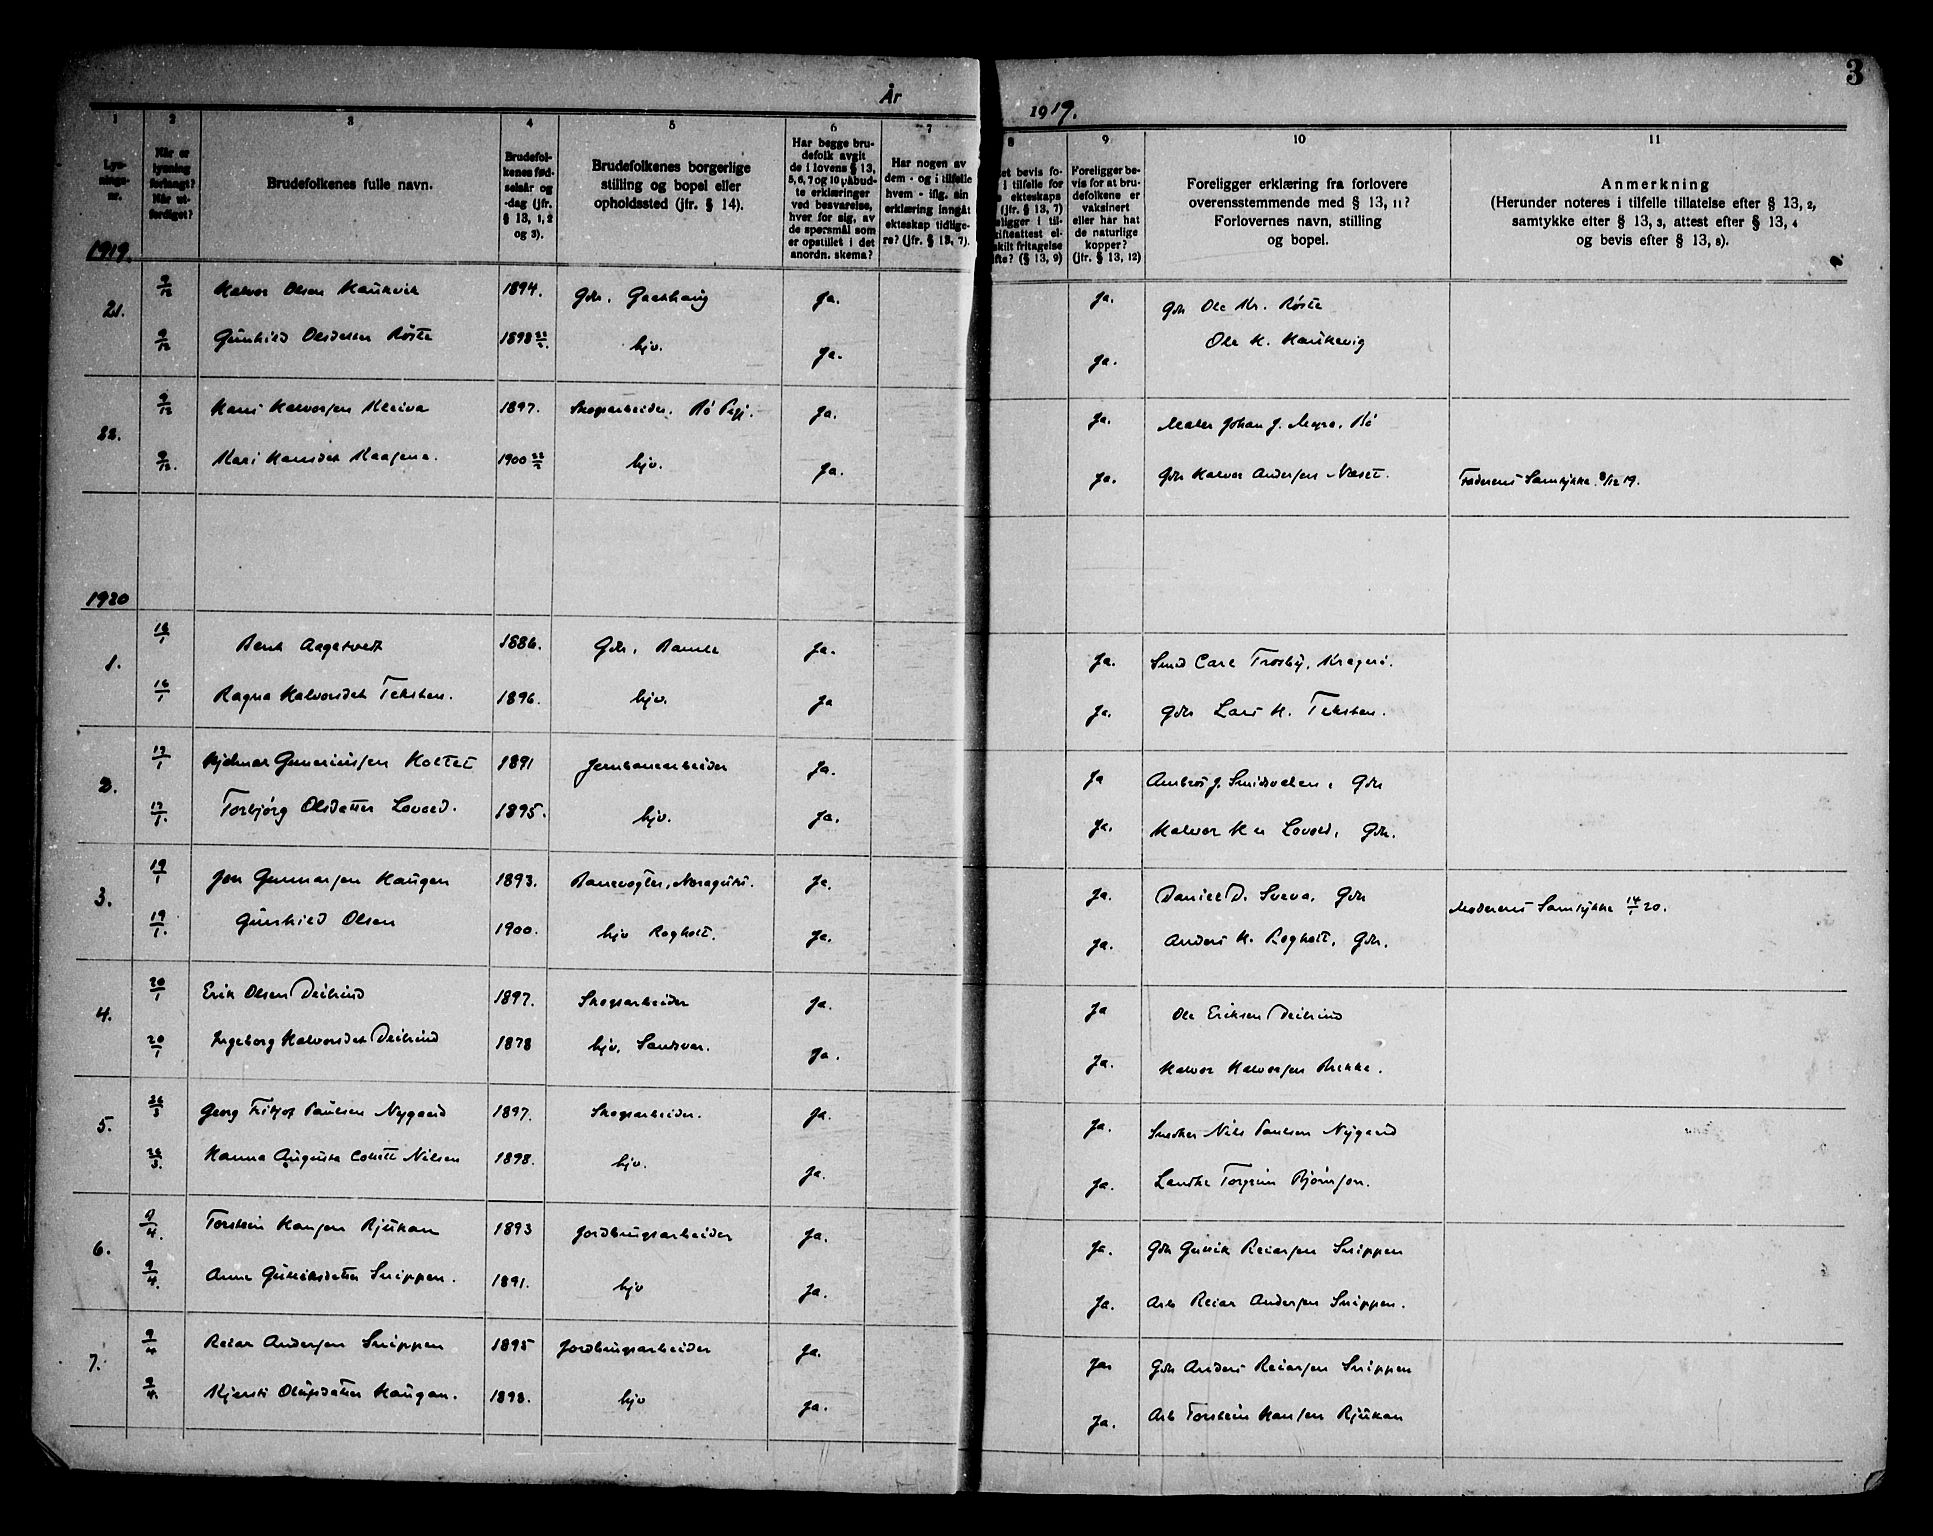 3
År 1919.
1 2 3 4 5 6 7 8 9 10 11
Lysnings-nr.
Når er lysning forlangt? Når utferdiget?
Brudefolkenes fulle navn.
Brudefolkenes fødselsår og -dag (jfr. § 13, 1, 2 og 3).
Brudefolkenes borgerlige stilling og bopel eller opholdssted (jfr. § 14).
Har begge brudefolk avgit de i lovens § 13, 5, 6, 7 og 10 påbudte erklæringer ved besvarelse, hver for sig, av de spørsmål som er opstillet i det anordn. skema?
Har nogen av dem - og i tilfelle hvem - iflg. sin erklæring inngåt ekteskap tidligere? (jfr. § 13, 7).
Foreligger bevis for at brudefolkene er vaksinert eller har hat de naturlige kopper? (jfr. § 13, 12)
Foreligger erklæring fra forlovere overensstemmende med § 13, 11? Forlovernes navn, stilling og bopel.
Anmerkning (Herunder noteres i tilfelle tillatelse efter § 13, 2, samtykke efter § 13, 3, attest efter § 13, 4 og bevis efter § 13, 8).
1919.
21. 9/12 Halvor Olsen Haukvik 1894. Gbr. Ja. Ja. Gbr Ole Kr. Røste
9/12 Gunhild Olsdatter Røste 1898 hjv. Ja. Ja. Ole H. Haukevig
22. 9/12 Hans Halvorsen Kleiva 1897. Skogsarbeider. Bø Ja. Ja. Maler Johan J. Myra, Bø
9/12. Kari Hansdet Haagena. 1900 hjv. Ja. Ja. Gbr Halvor Andersen Næset. Faderens Samtykke 8/12 19.
1920
1. 16/1 Bent Aagetvedt 1886. Gbr, Bamle Ja. Ja. Smed Carl Trosby, Kragerø.
16/1 Ragna Halvorsdet Teksten. 1896. hjv. Ja Ja. Gbr Lars H. Teksten.
2. 17/1 Hjelmar Gunerius sen Holtet 1891 Jernbanearbeider Ja. Ja Ambros J. Smidsdalen, Gbr
17/1. Torbjørg Olsdatter Lovald. 1895. hjv. Ja. Ja. Halvor H Lovald, Gbr.
3. 19/1 Jon Gunnarsen Haugen 1893. Banevogter, Ja. Ja. Daniel D. Sveva, Gbr Moderens Samtykke 14/1 20.
19/1. Gunhild Olsen 1900. hjv Rogholt. Ja. Ja. Anders H. Rogholt, Gbr.
4. 20/1 Erik Olsen Deilrind 1897. Skogsarbeider Ja. Ja Ole Eriksen Deilrind
20/1 Ingeborg Halvorsdet Deilrind 1878 hjv. Sandsvær. Ja. Ja. Halvor Halvorsen Bekka.
5. 26/3 Georg Fritjof Paulsen Nygaard 1897. Skogsarbeider. Ja. Ja. Snedker Nils Paulsen Nygaard
26/3. Hanna Augusta Colett Nilsen 1898. hjv. Ja. Ja. Landhr Torgrim Bjørnsen.
6. 9/4. Torstein Hansen Rjukan 1893 Jordbrugsarbeider Ja. Ja. Gbr Gullik Reiarsen Snippen
9/4. Anne Gulliksdatter Snippen. 1891. hjv Ja. Ja. Arb Reiar Andersen Snippen.
7. 9/4 Reiar Andersen Snippen 1895 Jordbrugsarbeider Ja. Ja. Gbr Anders Reiarsen Snippen
9/4. Kjersti Olufsdatter Haugan. 1898. hjv Ja. Ja. Arb Torstein Hansen Rjukan